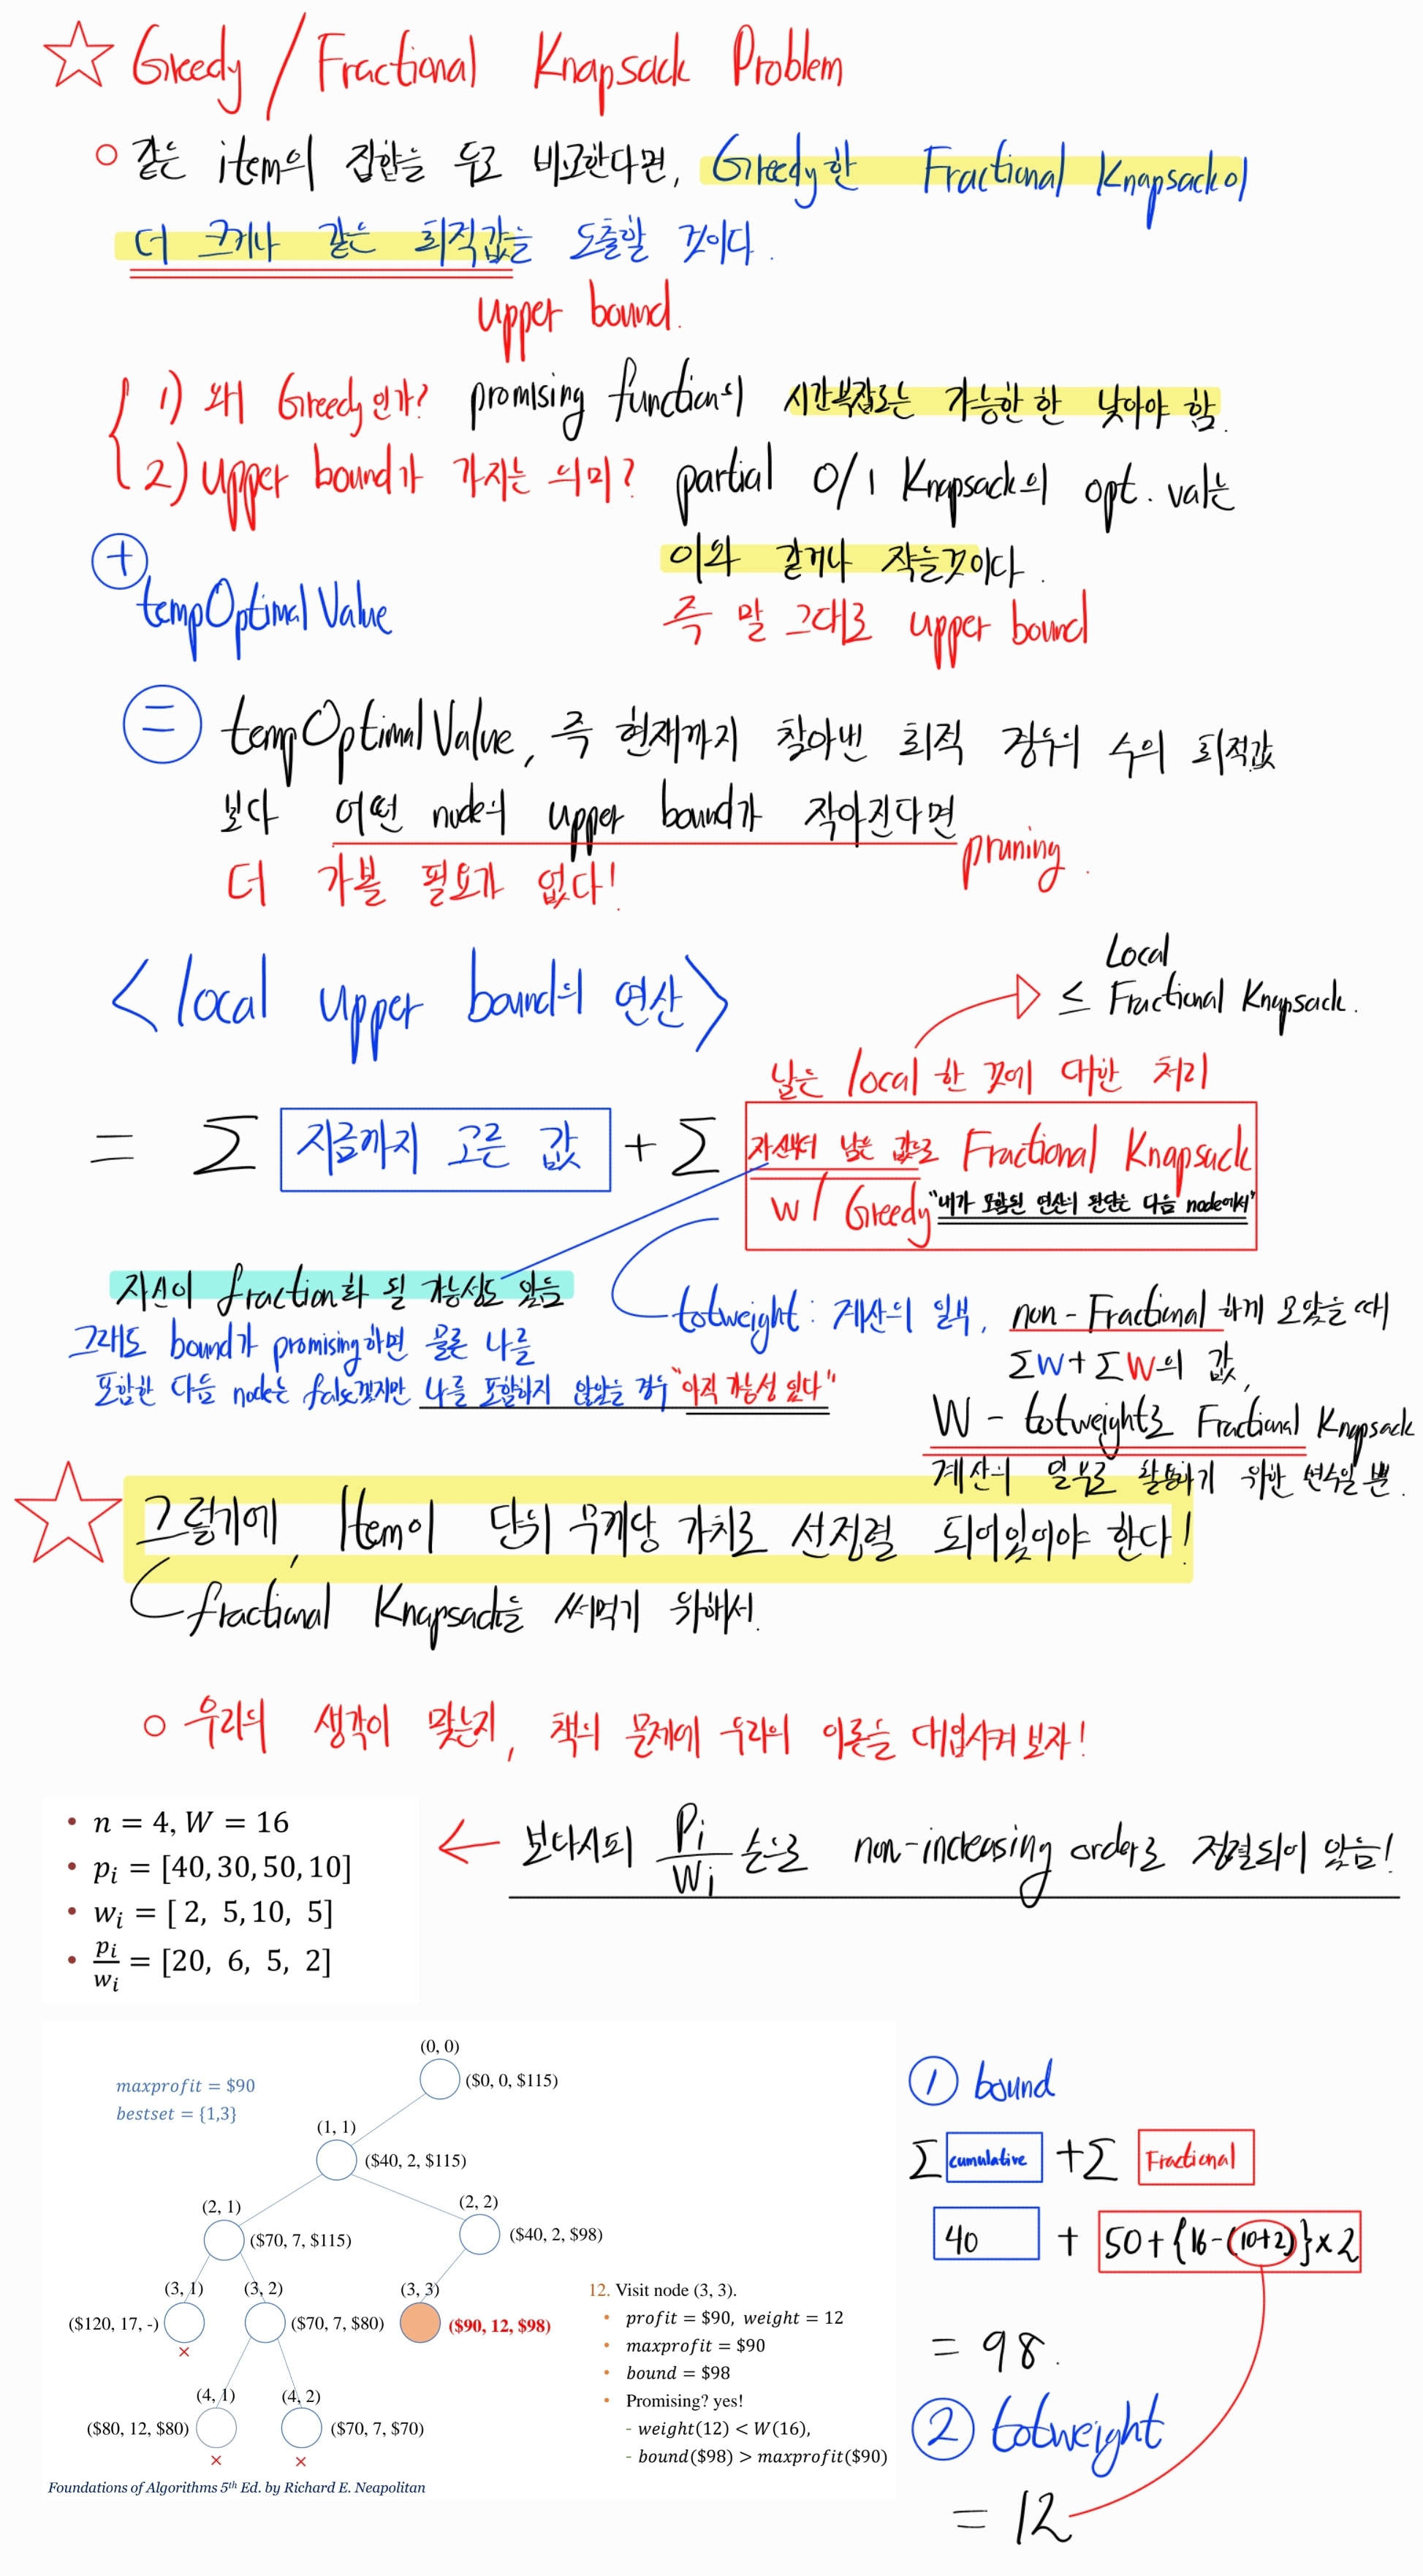 ☆ Greedy / Fractional Knapsack Problem
○ 같은 item의 집합을 두고 비교한다면, Greedy한 Fractional Knapsack이
더 크거나 같은 최적값을 도출할 것이다.
upper bound.
1) 왜 Greedy인가? promising function의 시간복잡도는 가능한 한 낮아야 함.
2) upper bound가 가지는 의미? partial 0/1 Knapsack의 opt. val는
이와 같거나 작을것이다.
즉 말 그대로 upper bound
+
tempOptimalValue
= tempOptimalValue, 즉 현재까지 찾아본 최적 경우의 수의 최적값
보다 어떤 node의 upper bound가 작아진다면
pruning.
더 가볼 필요가 없다!
<local upper bound의 연산>
Local
≤ Fractional Knapsack.
남은 local한 것에 대한 처리
= Σ 지금까지 고른 값 + Σ 자신부터 남은 값으로 Fractional Knapsack
w/ Greedy "내가 포함된 연산의 판단은 다음 node에서"
자신이 fraction화 될 가능성도 있음
그래도 bound가 promising하면 물론 나를
포함한 다음 node는 false겠지만 나를 포함하지 않았을 경우 "아직 가능성 있다"
totweight : 계산의 일부, non-Fractional하게 모았을 때
ΣW+ΣW의 값,
W - totweight로 Fractional Knapsack
계산의 일부로 활용하기 위한 변수일 뿐.
☆ 그렇기에, Item이 단위 무게당 가치로 선정렬 되어있어야 한다!
fractional Knapsack을 써먹기 위해서.
○ 우리의 생각이 맞는지, 책의 문제에 우리의 이론을 대입시켜보자!
• n = 4, W = 16
• pi = [40, 30, 50, 10]
• wi = [ 2, 5, 10, 5]
• pi/wi = [20, 6, 5, 2]
← 보다시피 Pi/Wi 순으로 non-increasing order로 정렬되어 있음!
maxprofit = $90
bestset = {1,3}
(0, 0)
($0, 0, $115)
(1, 1)
($40, 2, $115)
(2, 1)
($70, 7, $115)
(2, 2)
($40, 2, $98)
(3, 1)
($120, 17, -)
×
(3, 2)
($70, 7, $80)
(3, 3)
($90, 12, $98)
(4, 1)
($80, 12, $80)
×
(4, 2)
($70, 7, $70)
×
12. Visit node (3, 3).
• profit = $90, weight = 12
• maxprofit = $90
• bound = $98
• Promising? yes!
- weight(12) < W(16),
- bound($98) > maxprofit($90)
Foundations of Algorithms 5th Ed. by Richard E. Neapolitan
① bound
Σ cumulative + Σ Fractional
40 + 50+{16-(10+2)}×2
= 98.
② totweight
= 12